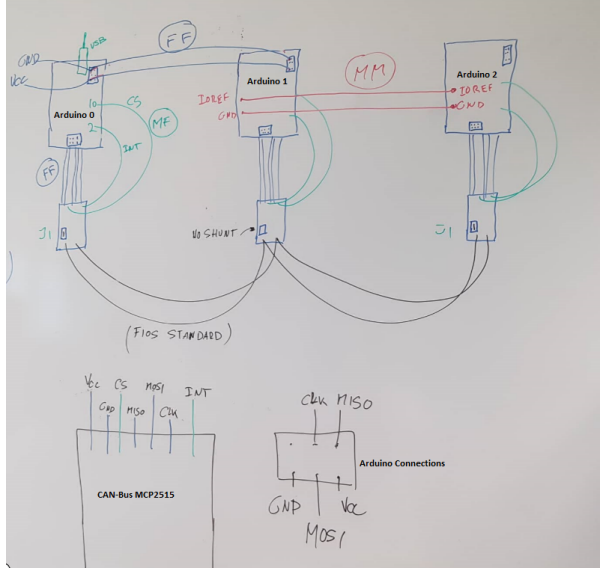 USB
FF
GND
VCC
Arduino 0
10
CS
2
INT
MF
FF
Arduino 1
IOREF
GND
MM
Arduino 2
IOREF
GND
J1
NO SHUNT
J1
(FIOS STANDARD)
Vcc CS MOSI INT
GND MISO CLK
CAN-Bus MCP2515
CLK MISO
Arduino Connections
GND Vcc
MOSI